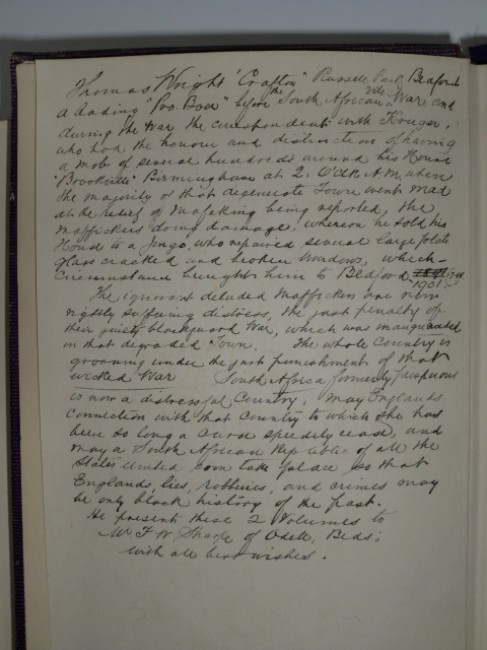 Thomas Wright "Crofton" Russell Park, Bedford
a leading "Pro. Boer" before the South African vile War and
during the War, the correspondent with Kruger,
who had the honour and distinction of having
a mob of several hundreds around his House
"Brookville" Birmingham at 2. O'Clk A.M. when
the majority of that degenerate Town went mad
at the relief of Mafeking being reported, the
Maffickers doing damage, whereon he sold his
House to a Jingo, who repaired several large plate
glass cracked and broken windows, which
circumstance brought him to Bedford 1901
The ignorant deluded Maffickers are now
rightly suffering distress, the just penalty of
their guilty blackguard War, which was inaugurated
in that degraded Town. The whole Country is
groaning under the just punishment of that
wicked War South Africa formerly prosperous
is now a distressful Country, may Englands
Connection with that Country to which she has
been so long a curse speedily cease, and
may a South African Republic of all the
States United soon take place so that
Englands, lies, robberies, and crimes may
be only black history of the past.
He presents these 2 Volumes to
Mr F W Sharpe of Odell, Beds:
with all best wishes.